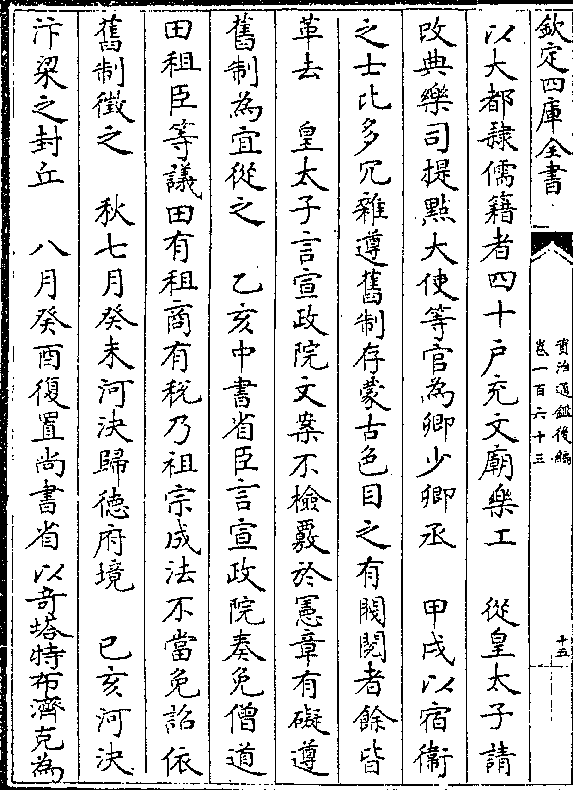 欽定四庫全書
資治通鑑後編
卷一百六十三
十五
以大都隸儒籍者四十戶充文廟樂工　從皇太子請
改典樂司提點大使等官為卿少卿丞　甲戌以宿衛
之士比多冗雜遵舊制存蒙古色目之有閥閱者餘皆
革去　皇太子言宣政院文案不檢覈於憲章有礙遵
舊制為宜從之　乙亥中書省臣言宣政院奏免僧道
田租臣等議田有租商有稅乃祖宗成法不當免詔依
舊制徵之　秋七月癸未河決歸德府境　已亥河決
汴梁之封丘　八月癸酉復置尚書省以奇塔特布濟克為